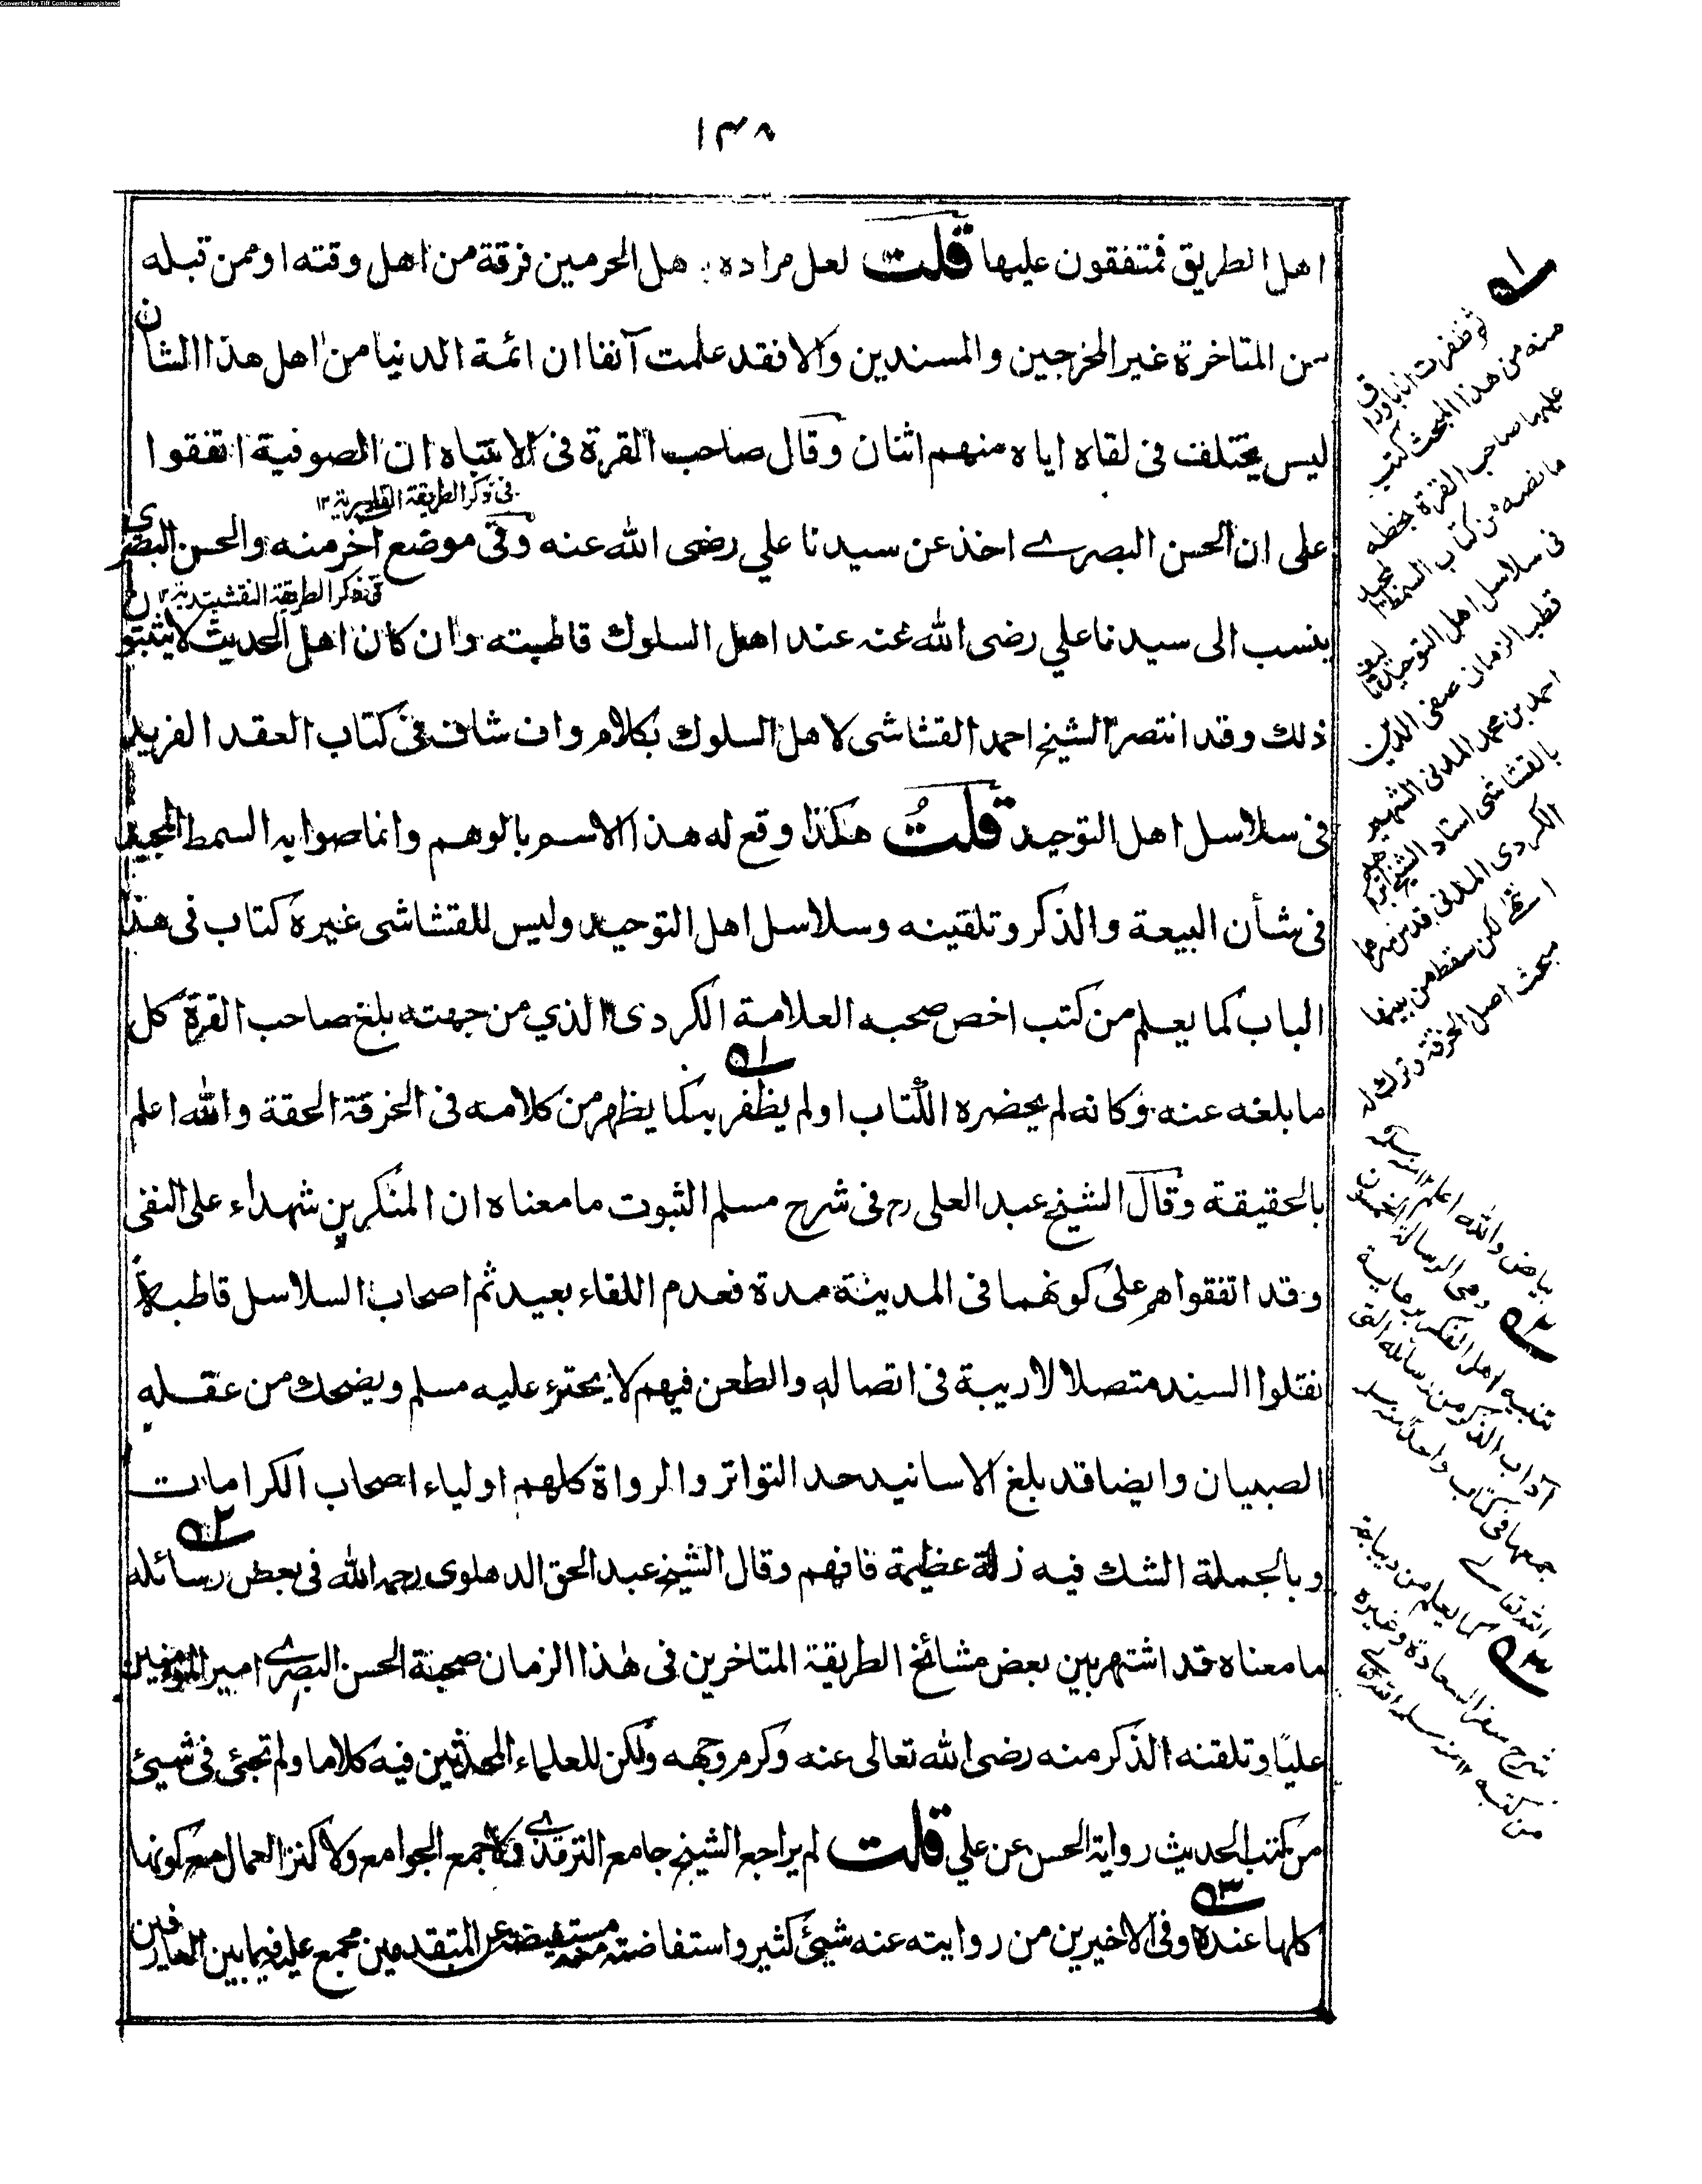 Converted by Tiff Combine - unregistered
١٣٨
اهل الطريق فمتفقون عليها قلت لعل مراده باهل الحرمين فرقة من اهل وقته او ممن قبله
من المتاخرة غير المخرجين والمسندين والا فقد علمت آنفا ان ائمة الدنيا من اهل هذا الشان
ليس يختلف فى لقاه اياه منهم اثنان وقال صاحب القرة فى الانتباه ان الصوفية اتفقوا
فى ذكر الطريقة القادرية ١٢
على ان الحسن البصرے اخذ عن سيدنا علي رضى الله عنه وفى موضع اخر منه والحسن البصرى
فى ذكر الطريقة النقشبندية ١٢
ينسب الى سيدنا علي رضى الله عنه عند اهل السلوك قاطبته وان كان اهل الحديث لا يثبتون
ذلك وقد انتصر الشيخ احمد القشاشى لاهل السلوك بكلام واف شاف فى كتاب العقد الفريد
فى سلاسل اهل التوحيد قلتُ هكذا وقع له هذا الاسم بالوهم وانما صوابه السمط المجيد
فى شأن البيعة والذكر وتلقينه وسلاسل اهل التوحيد وليس للقشاشى غيره كتاب فى هذا
الباب كما يعلم من كتب اخص صحبه العلامة الكردى الذي من جهته بلغ صاحب القرة كل
ما بلغه عنه وكانه لم يحضره الكتاب او لم يظفر به كما يظهر من كلامه فى الخرقة الحقة والله اعلم
بالحقيقة وقال الشيخ عبد العلى رح فى شرح مسلم الثبوت ما معناه ان المنكرين شهداء على النفى
وقد اتفقوا هم على كونهما فى المدينة مدة فعدم اللقاء بعيد ثم اصحاب السلاسل قاطبة
نقلوا السند متصلا لا ريبة فى اتصاله والطعن فيهم لا يجترء عليه مسلم ويضحك من عقله
الصبيان وايضا قد بلغ الاسانيد حد التواتر والرواة كلهم اولياء اصحاب الكرامات
وبالجملة الشك فيه زلة عظيمة فافهم وقال الشيخ عبد الحق الدهلوى رحمه الله فى بعض رسائله
ما معناه قد اشتهر بين بعض مشائخ الطريقة المتاخرين فى هذا الزمان صحبة الحسن البصرے امير المؤمنين
عليًا وتلقنه الذكر منه رضى الله تعالى عنه وكرم وجهه ولكن للعلماء المحدثين فيه كلاما ولم تجئ فى شيئ
من كتب الحديث رواية الحسن عن علي قلت لم يراجع الشيخ جامع الترمذے ولا جمع الجوامع ولا كنز العمال مع كونها
كلها عنده وفى الاخيرين من روايته عنه شيئ كثير واستفاضته مستفيضة عن المتقدمين مجمع عليه فيما بين العارفين
١ ثم ظفرت انا باوراق
منه من هذا المبحث كتب
عليها صاحب القرة بخطه
ما نصه من كتاب السمط المجيد
فى سلاسل اهل التوحيد تاليف
قطب الزمان صفى الدين
احمد بن محمد المدنى الشهير
بالقشاشى استاد الشيخ ابراهيم
الكردى المدنى قدس سرهما
انتهى لكن سقط من بينها
مبحث اصل الخرقة وترك له
بياض والله اعلم ١٢ منه سلمه
٢ وهى الرسالة الخمسون
تنبيه اهل الفكر برعاية
آداب الذكر من رسائله التى
جمعها فى كتاب واحد ١٢ منه سلمه
الله تعالے
٣ كما يعلم من ديباجة
شرح سفر السعادة وغيره
من كتبه ١٢ منه سلمه الله